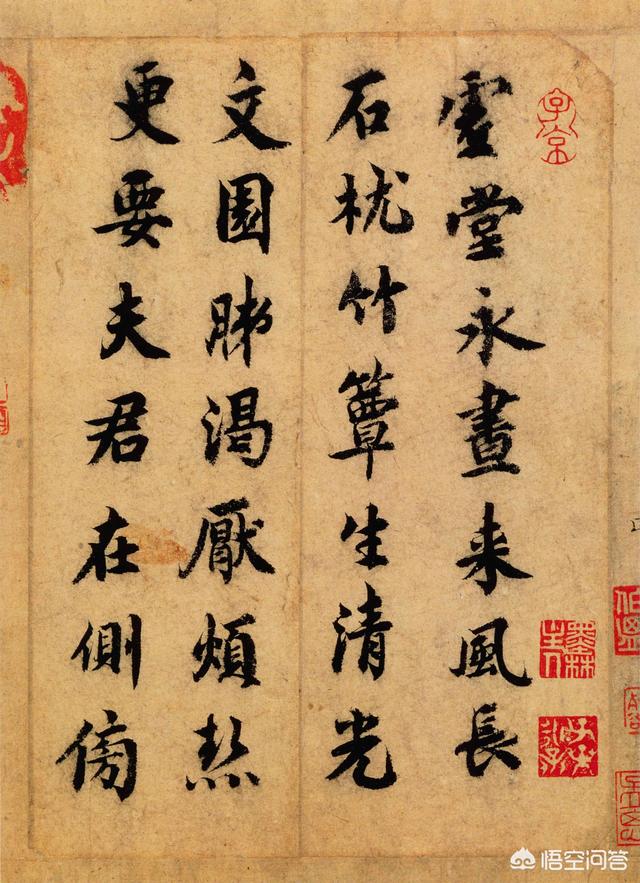 虚堂永晝来風長
石枕竹簟生清光
文園肺渴厭煩熱
更要夫君在側傍
子京
悟空问答